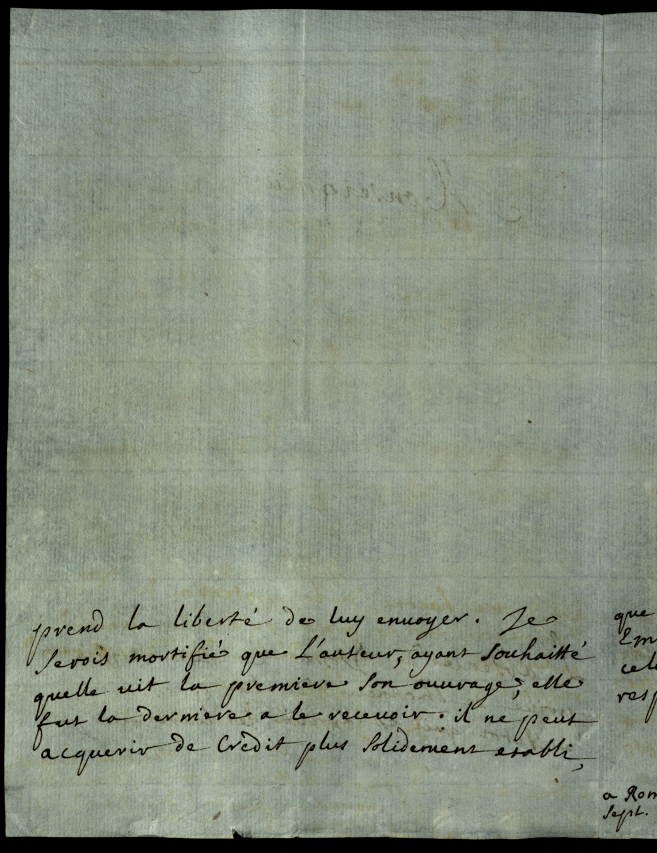 prend la liberté de luy enuoyer. Je
serois mortifié que L'auteur, ayant souhaitté
quelle uit la premiere son ouurage, elle
fut la derniere a le receuoir. il ne peut
acquerir de Credit plus solidement establi,
que
Em
cel
resp
a Rom
Sept.